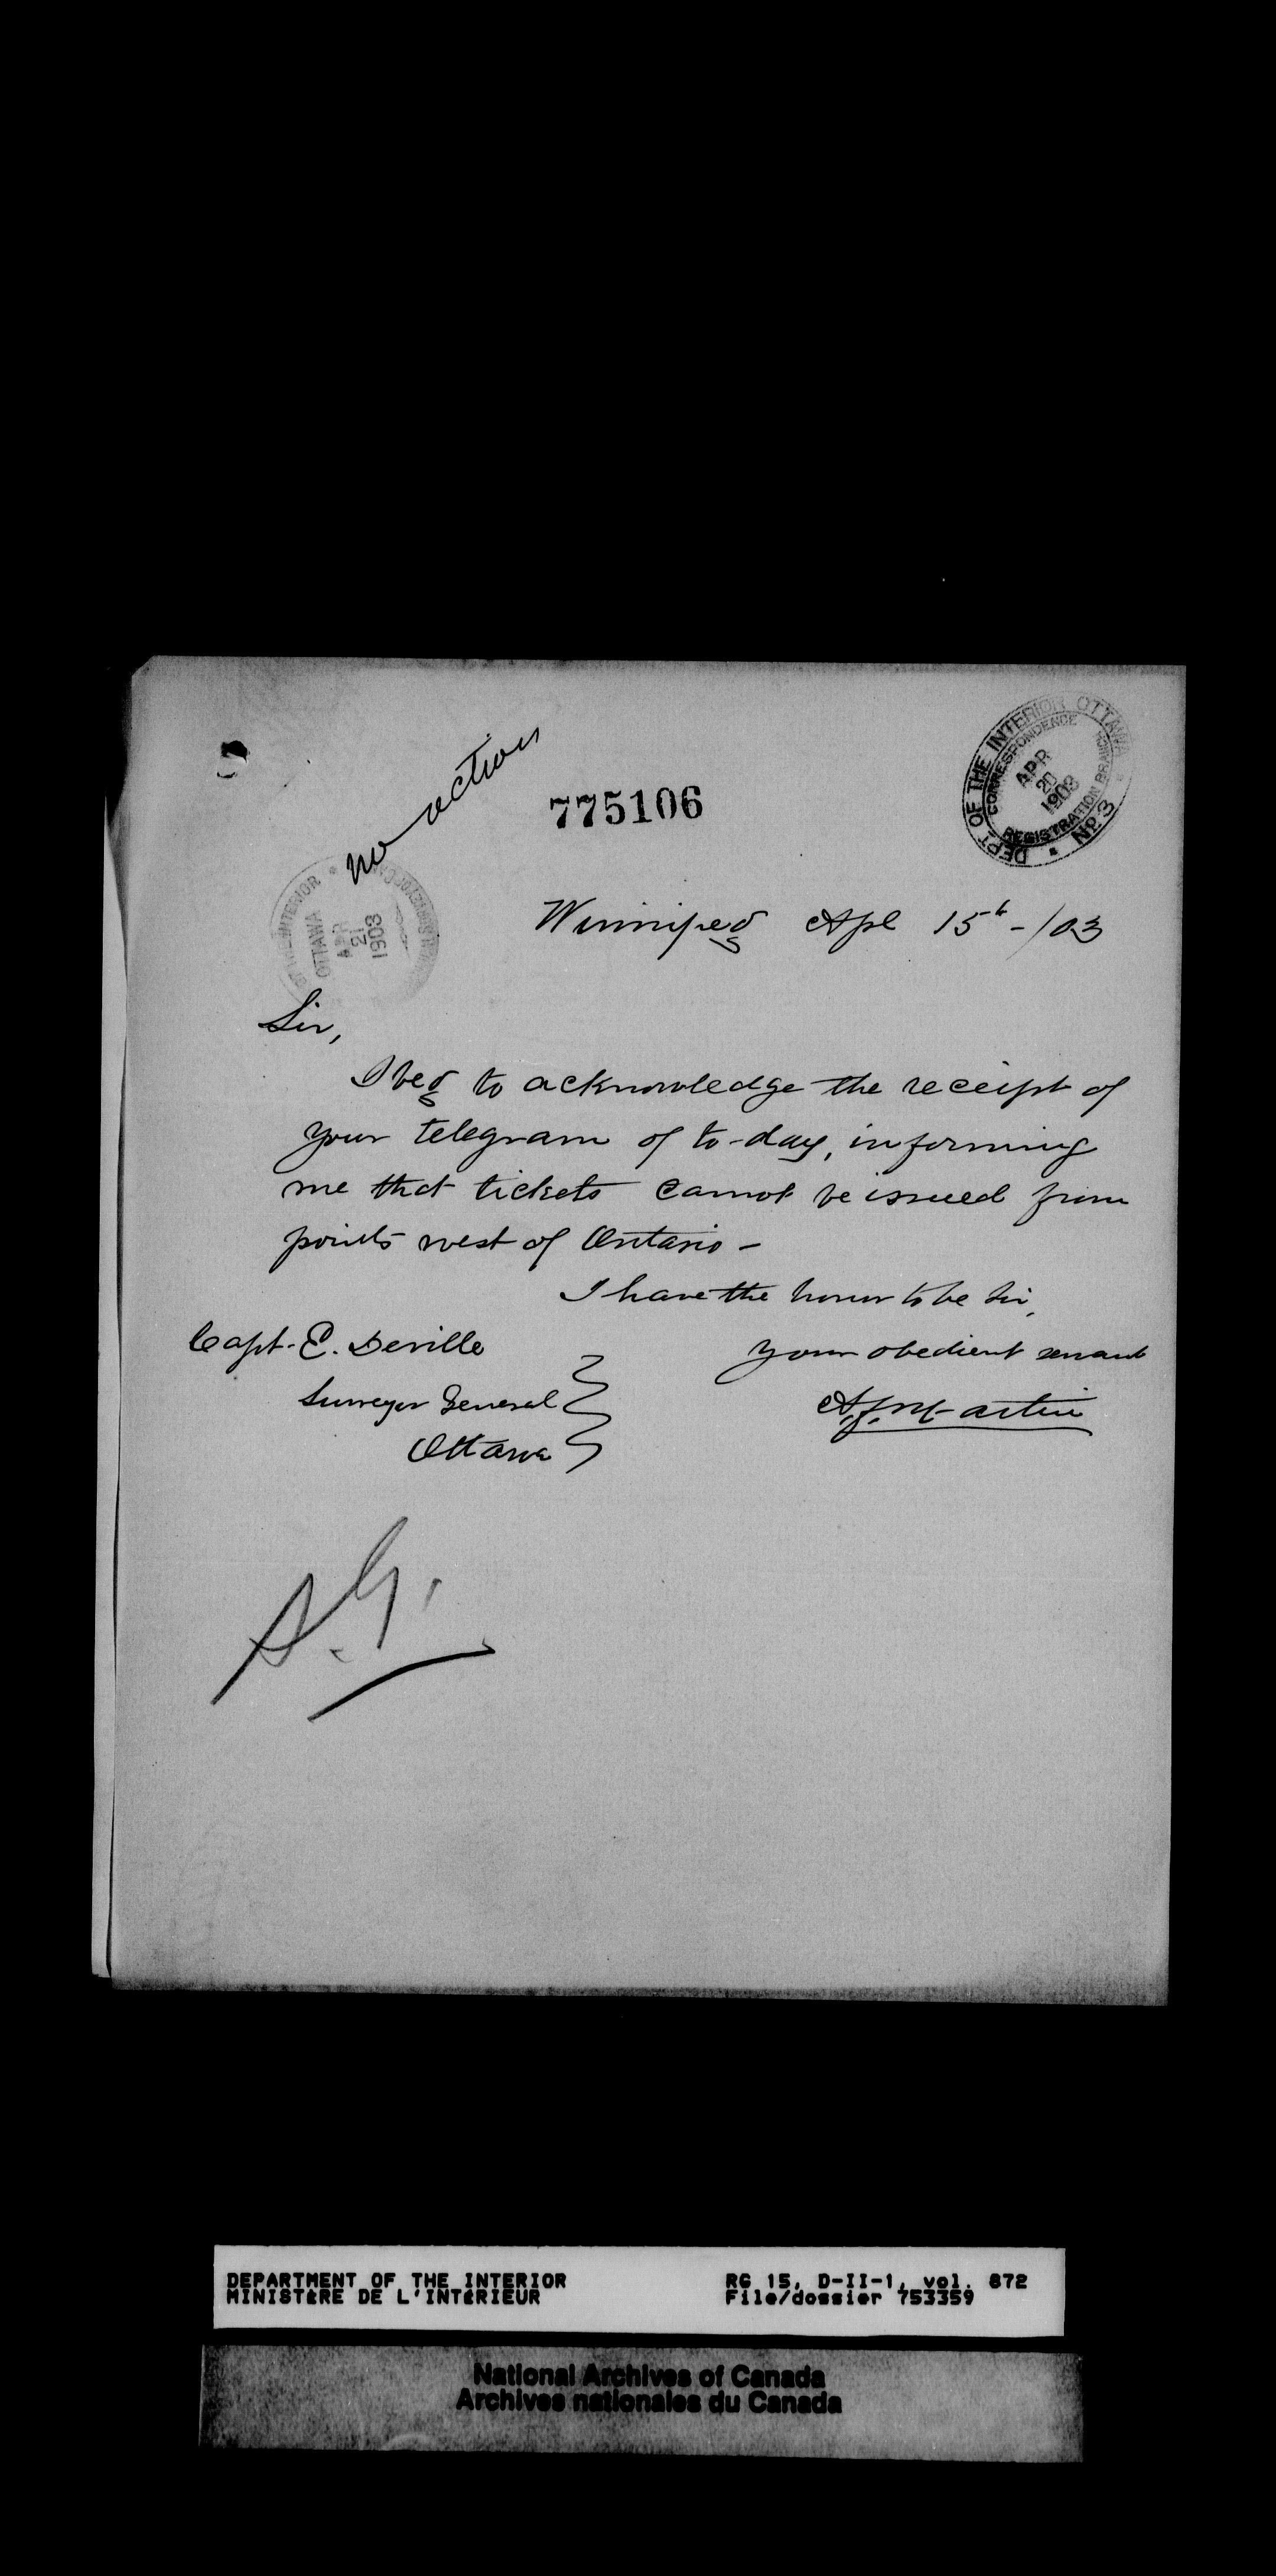 no action
775106
DEPT. OF THE INTERIOR OTTAWA
CORRESPONDENCE
APR
20
1903
REGISTRATION BRANCH
No. 3
INTERIOR
OTTAWA
APR
21
1903
Winnipeg Apl 15th -/03
Sir,
I beg to acknowledge the receipt of
your telegram of to-day, informing
me that tickets cannot be issued from
points west of Ontario -
I have the honor to be Sir,
Capt. E. Deville
your obedient servant
Surveyor General
A.J. Martin
Ottawa
S.G.
DEPARTMENT OF THE INTERIOR
MINISTÈRE DE L'INTÉRIEUR
RG 15, D-II-1, vol. 872
File/dossier 753359
National Archives of Canada
Archives nationales du Canada